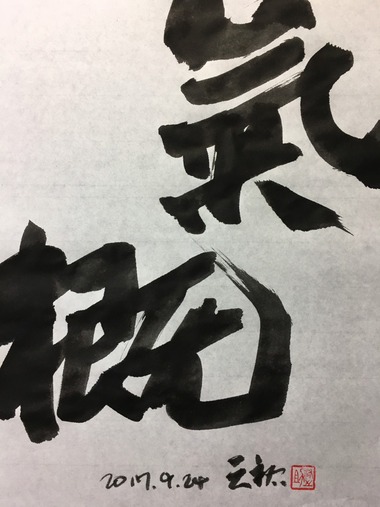 氣
概
2017.9.24